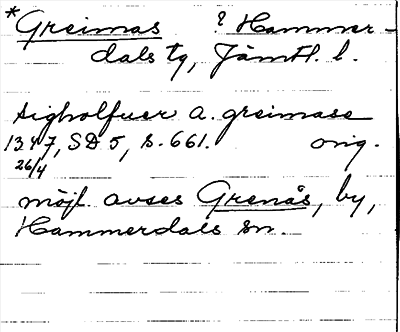 *Greimas ? Hammer-
dals tg, Jämtl. l.
sigholfuer a. greimase
1347, SD 5, s. 661. orig.
26/4
möjl. avses Grenås, by,
Hammerdals sn.